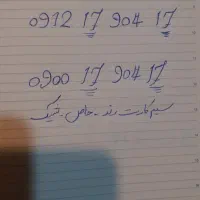 0912 17 904 17
0900 17 904 17
سیم کارت رند - خاص - تیک